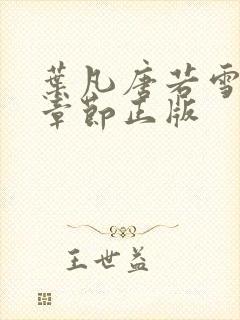 葉凡唐若雪
章節正版
王世益